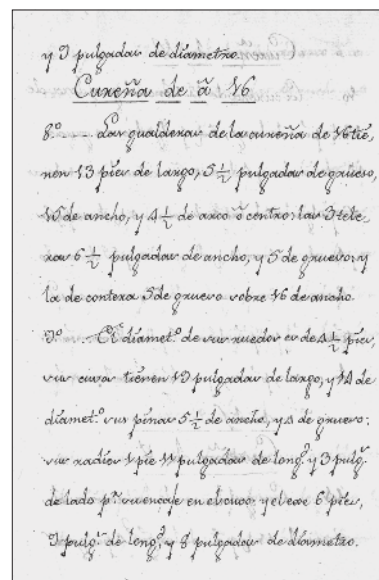 y 9 pulgadas de diametro.
Cureña de ã 16
8.º .... Las gualderas de la cureña de 16 tie,
nen 13 pies de largo, 5 1/2 pulgadas de grueso,
15 de ancho, y 4 1/2 de arco ô centro: las 3 tele,
ras 6 1/2 pulgadas de ancho, y 5 de grueso: y
la de contera 5 de grueso sobre 16 de ancho.
9.º .... El diamet.º de sus ruedas es de 4 1/2 pies,
sus cuvos tienen 13 pulgadas de largo, y 14 de
diamet.º sus pinas 5 1/2 de ancho, y 4 de grueso:
sus radios 1 pie 11 pulgadas de long.ª y 3 pulg.ˢ
de lado p.ª su encaje en el cuvo: y el exe 6 pies,
9 pulg.ˢ de long.ª, y 8 pulgadas de diametro.